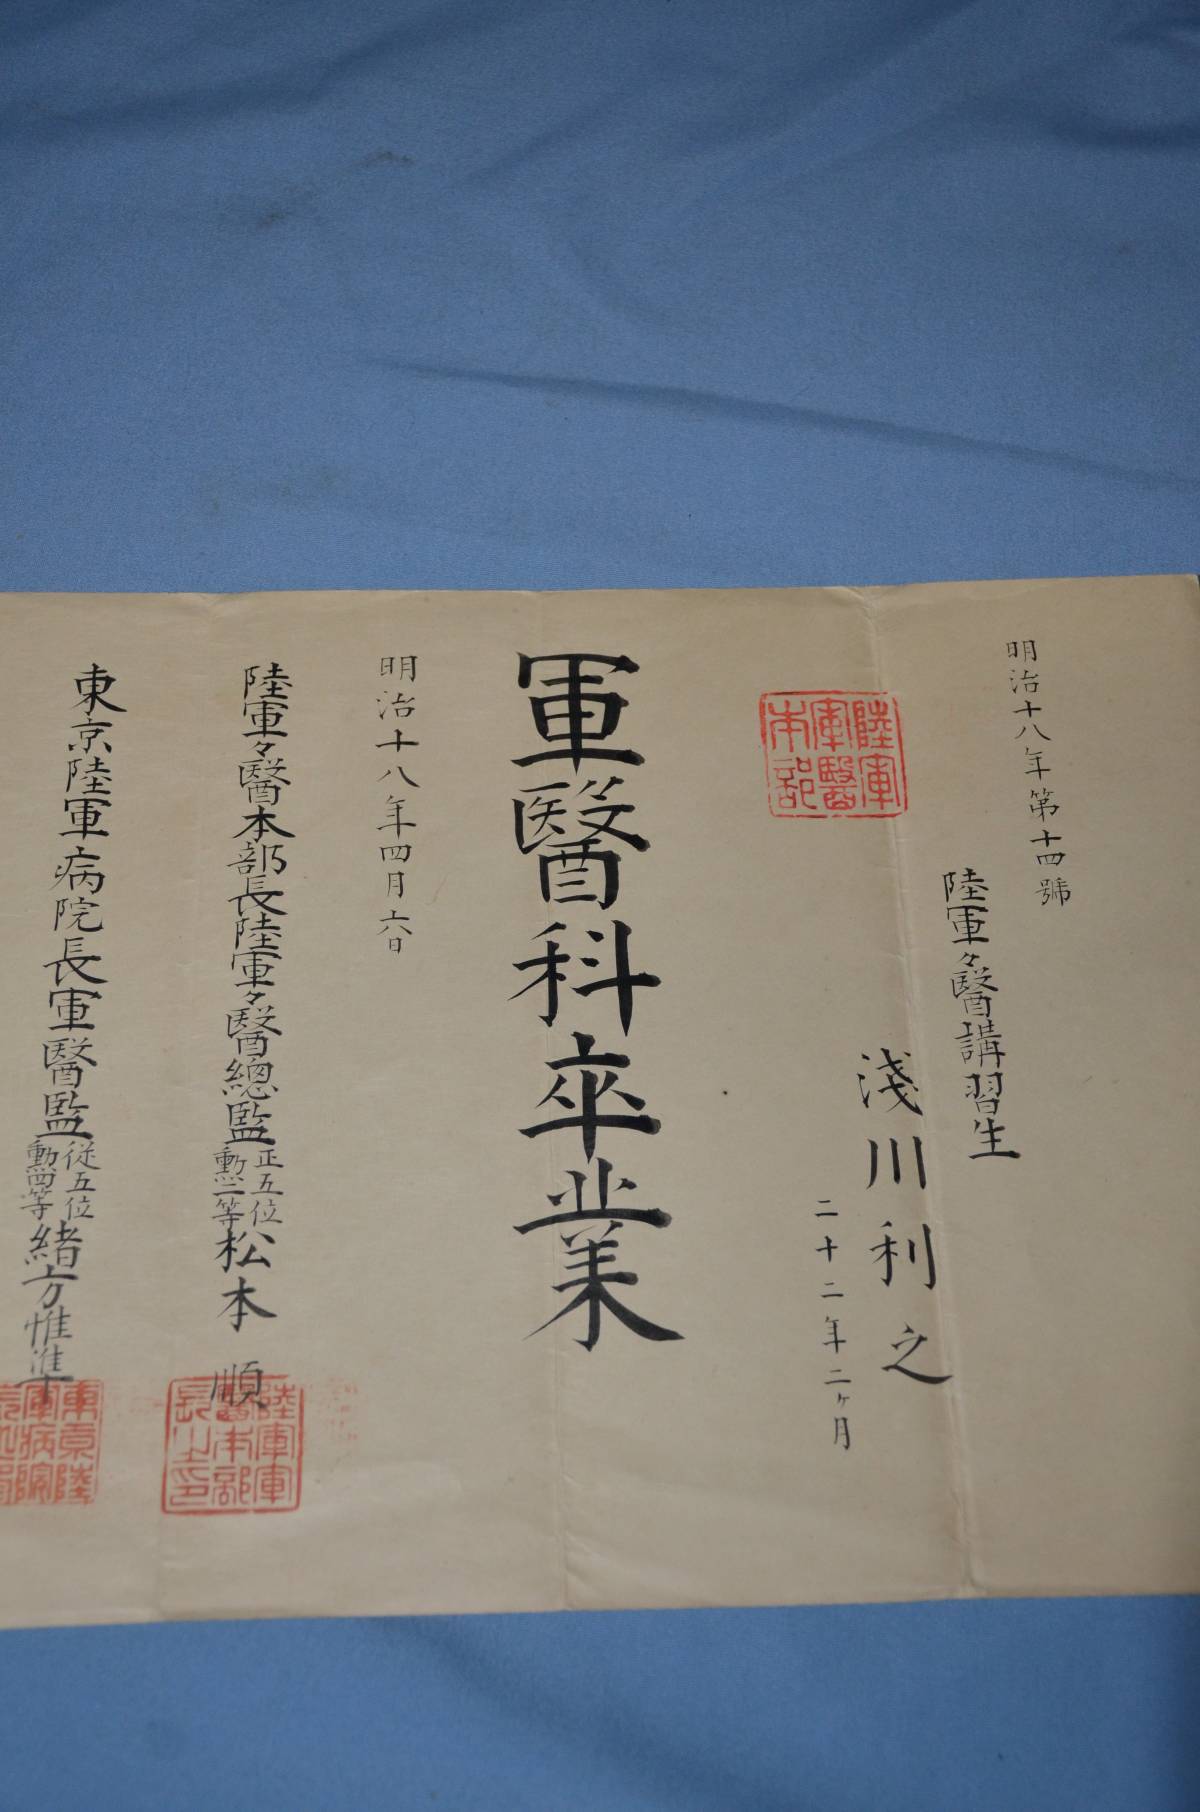 明治十八年第十四號
陸軍々醫講習生
淺川利之
二十二年二ヶ月
陸軍
軍醫
本部
軍醫科卒業
明治十八年四月六日
陸軍々醫本部長陸軍々醫總監正五位勳二等松本順
陸軍軍
醫本部
長之印
東京陸軍病院長軍醫監從五位勳四等緒方惟準
東京陸
軍病院